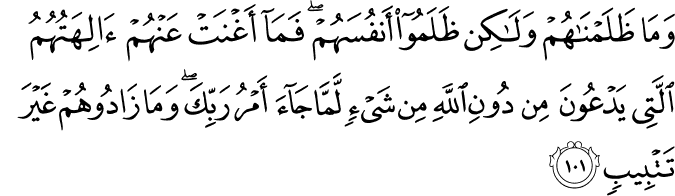 وَمَا ظَلَمْنَٰهُمْ وَلَٰكِن ظَلَمُوٓا۟ أَنفُسَهُمْ ۖ فَمَآ أَغْنَتْ عَنْهُمْ ءَالِهَتُهُمُ
ٱلَّتِى يَدْعُونَ مِن دُونِ ٱللَّهِ مِن شَىْءٍ لَّمَّا جَآءَ أَمْرُ رَبِّكَ ۖ وَمَا زَادُوهُمْ غَيْرَ
تَتْبِيبٍ ١٠١